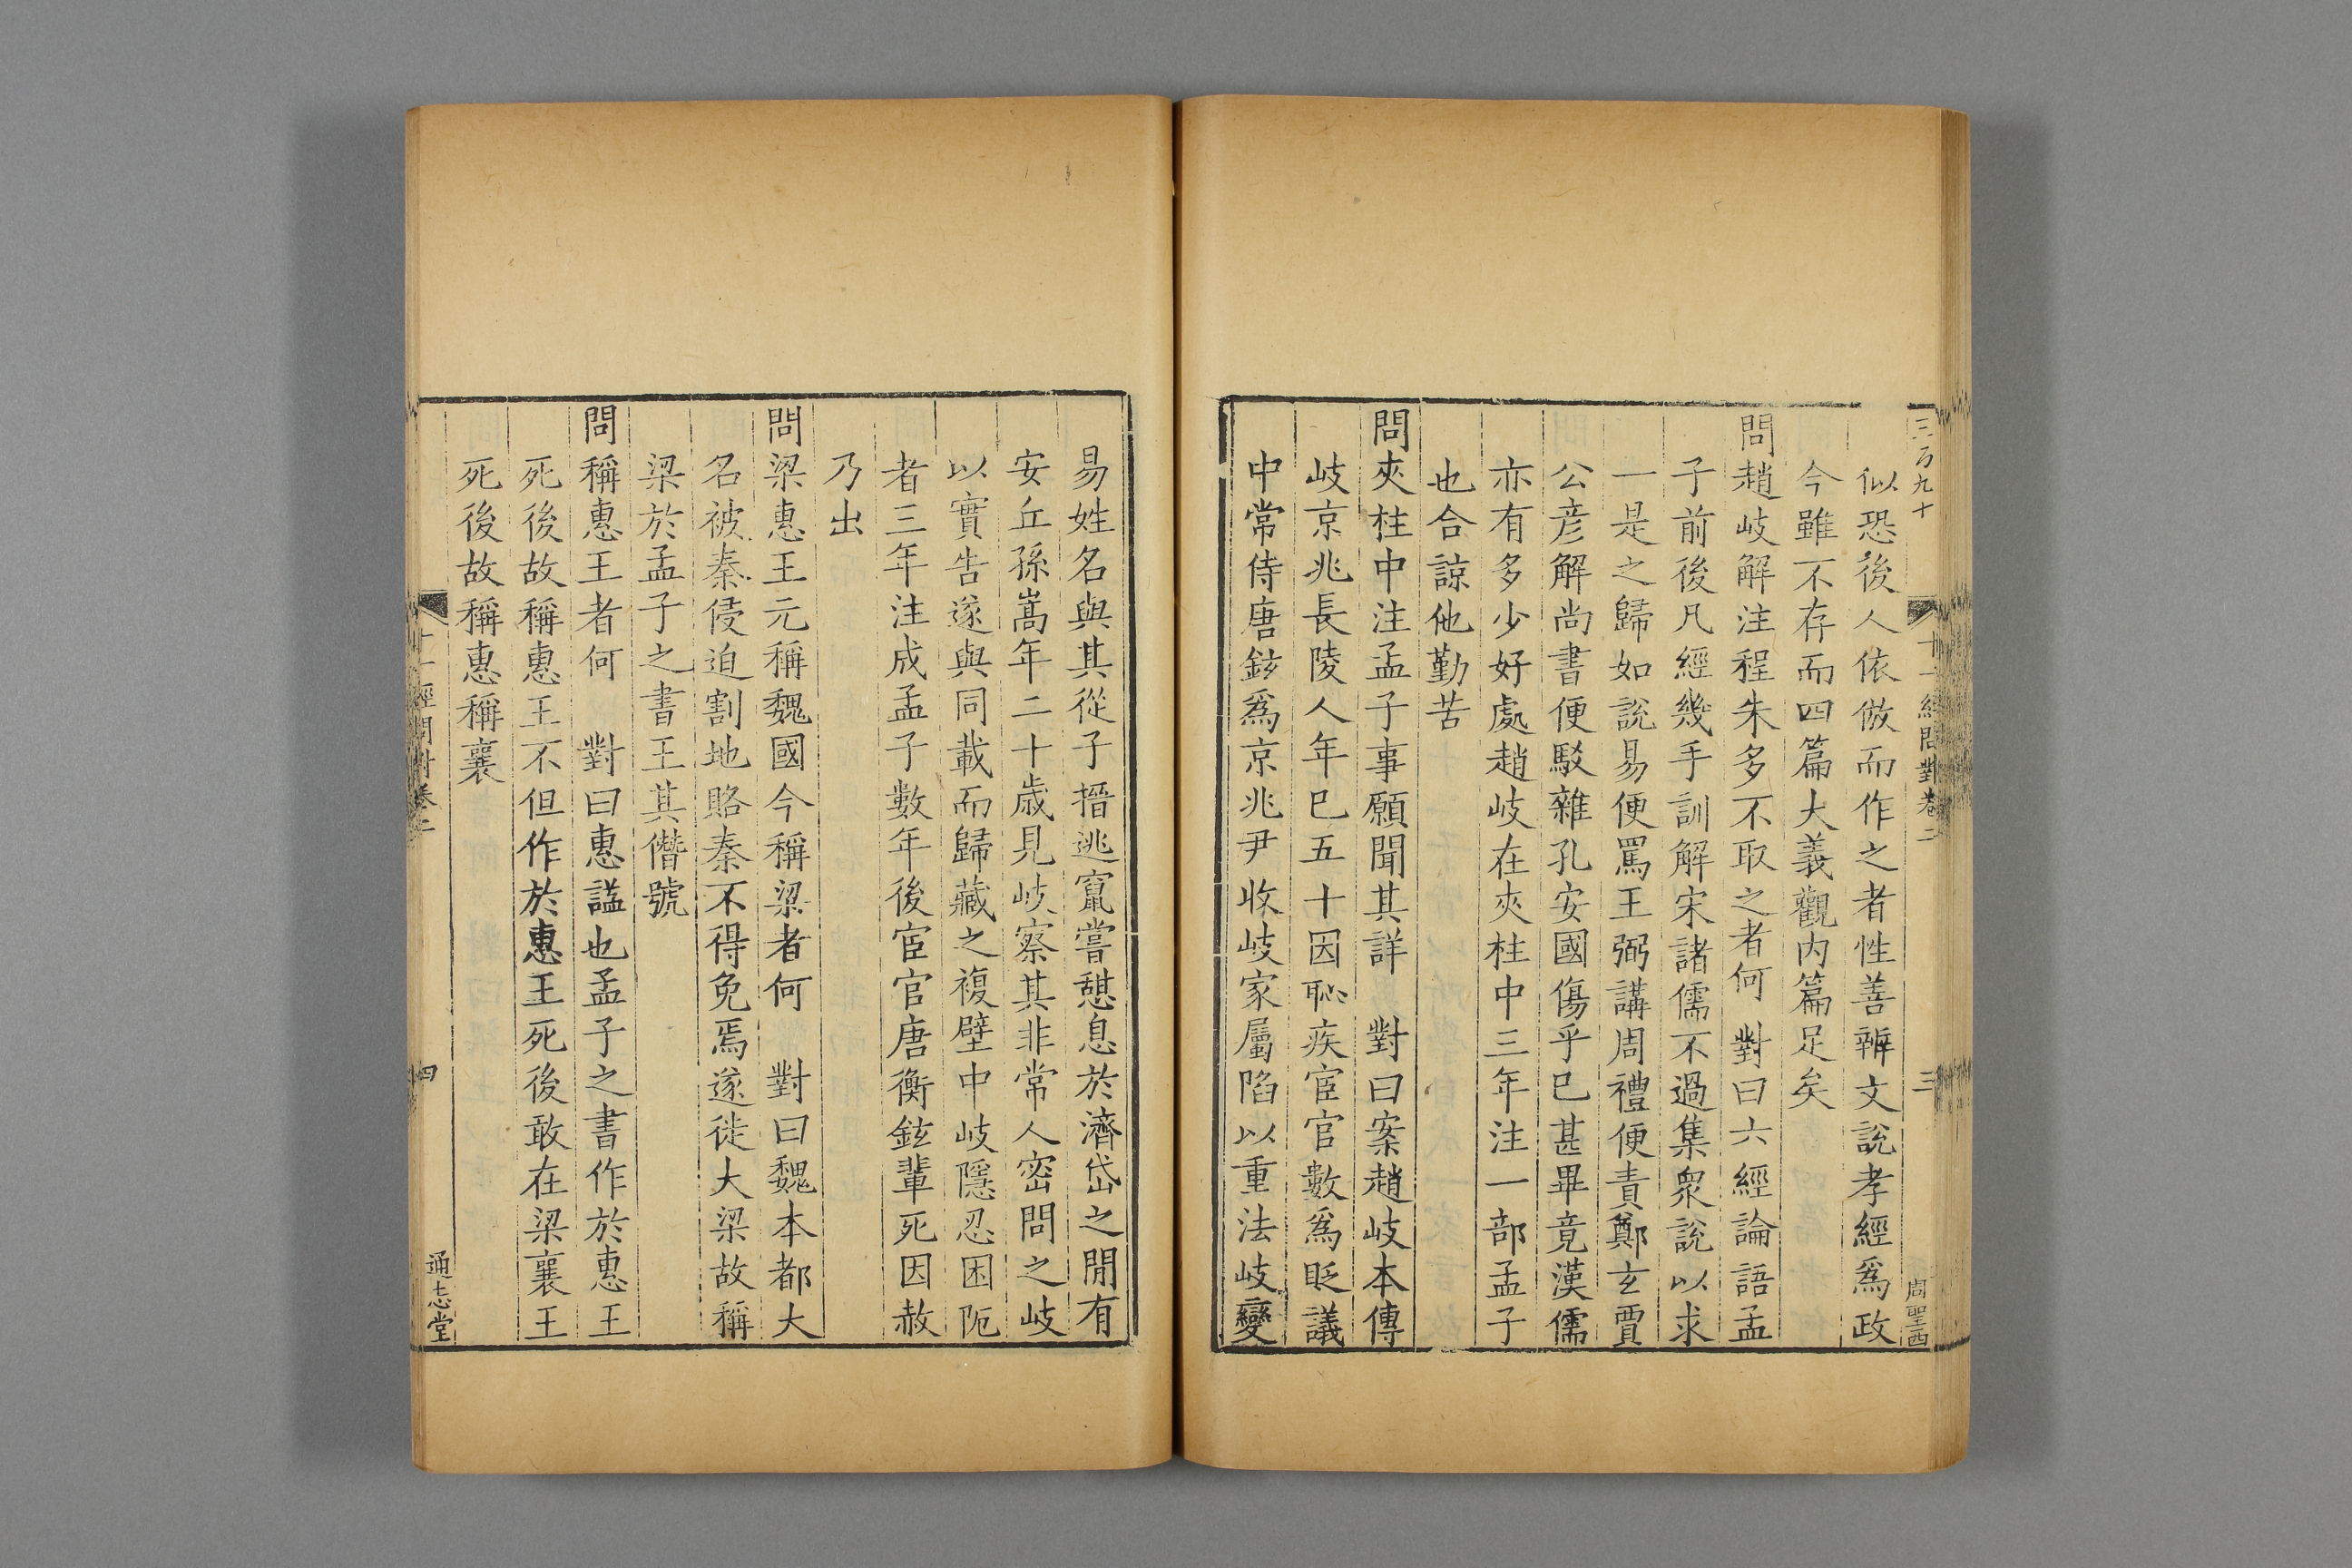 三百九十
十一經問對卷二
三
周聖西
似恐後人依倣而作之者性善辨文說孝經爲政
今雖不存而四篇大義觀内篇足矣
問趙岐解注程朱多不取之者何　對曰六經論語孟
子前後凡經幾手訓解宋諸儒不過集衆說以求
一是之歸如說易便罵王弼講周禮便責鄭玄賈
公彦解尚書便駁雜孔安國傷乎已甚畢竟漢儒
亦有多少好處趙岐在夾柱中三年注一部孟子
也合諒他勤苦
問夾柱中注孟子事願聞其詳　對曰案趙岐本傳
岐京兆長陵人年巳五十因恥疾宦官數爲貶議
中常侍唐鉉爲京兆尹收岐家屬陷以重法岐變
易姓名與其從子搢逃竄嘗憇息於濟岱之閒有
安丘孫嵩年二十歳見岐察其非常人密問之岐
以實告遂與同載而歸藏之複壁中岐隱忍困阨
者三年注成孟子數年後宦官唐衡鉉輩死因赦
乃出
問梁惠王元稱魏國今稱梁者何　對曰魏本都大
名被秦侵迫割地賂秦不得免焉遂徙大梁故稱
梁於孟子之書王其僭號
問稱惠王者何　對曰惠謚也孟子之書作於惠王
死後故稱惠王不但作於惠王死後敢在梁襄王
死後故稱惠稱襄
十一經問對卷二
四
通志堂